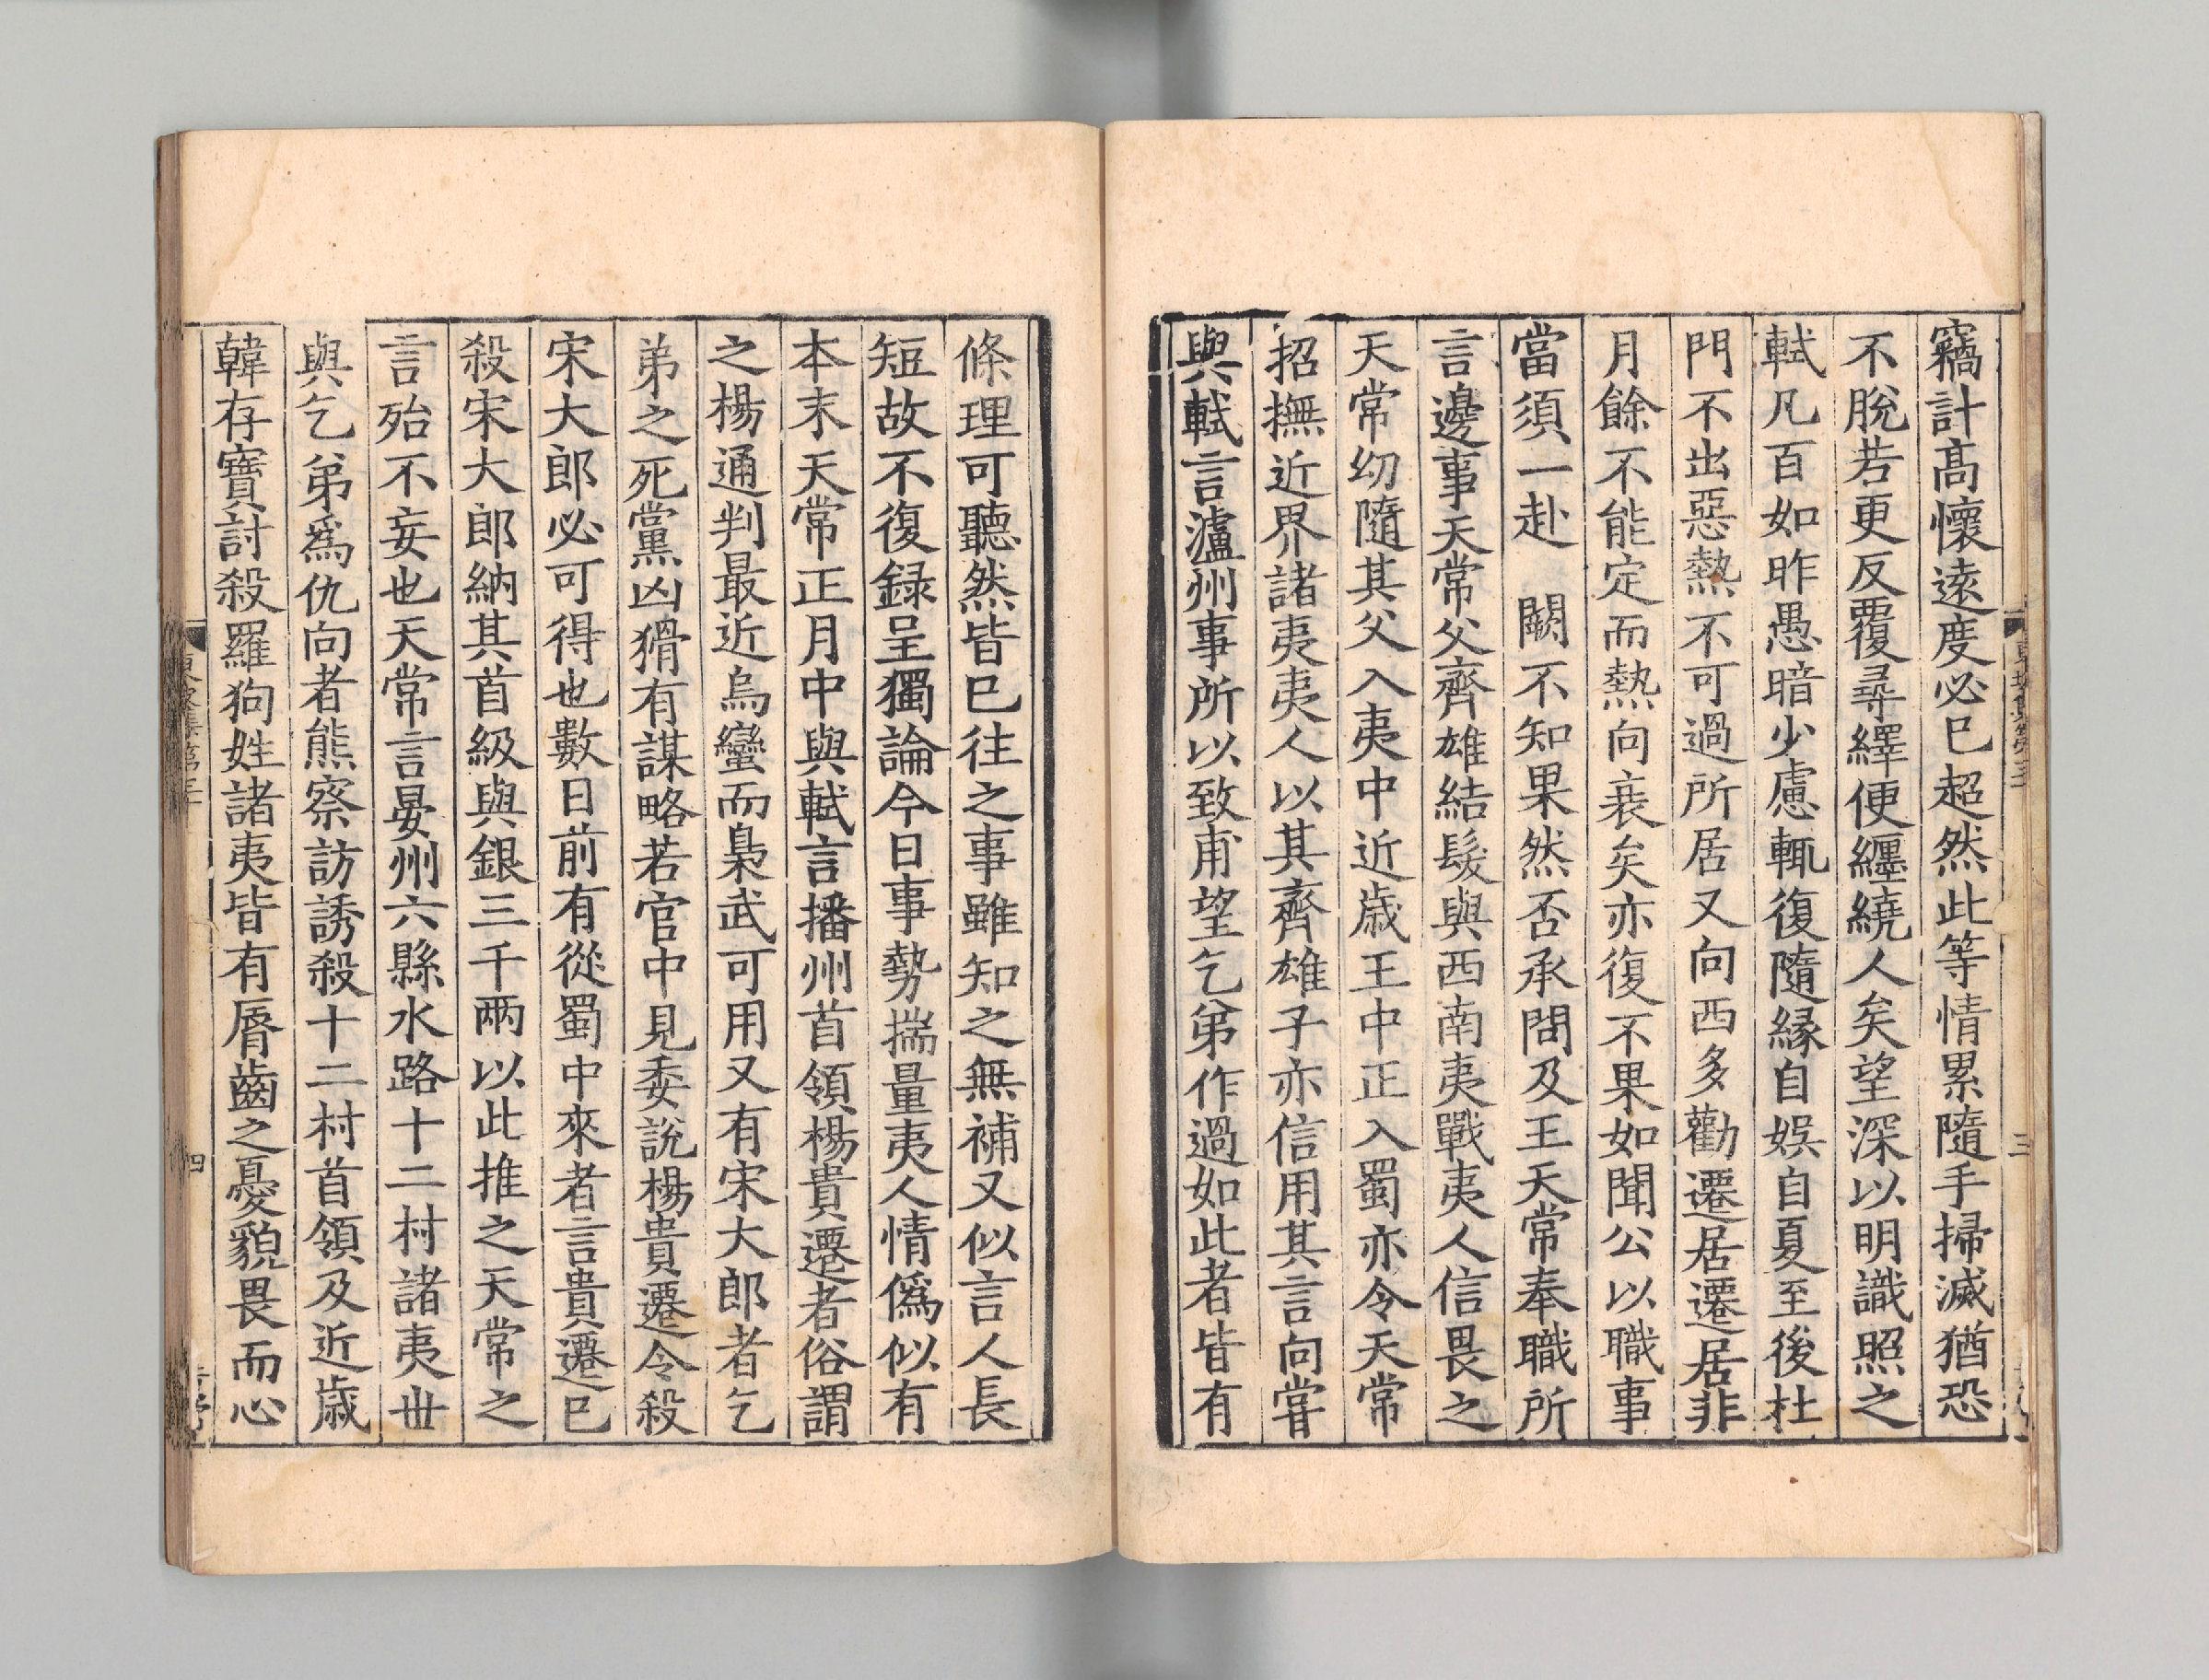 竊計高懷遠度必已超然此等情累隨手掃滅猶恐
不脫若更反覆尋繹便纏繞人矣望深以明識照之
軾凡百如昨愚暗少慮輒復隨緣自娛自夏至後杜
門不出惡熱不可過所居又向西多勸遷居遷居非
月餘不能定而熱向衰矣亦復不果如聞公以職事
當須一赴　闕不知果然否承問及王天常奉職所
言邊事天常父齊雄結髮與西南夷戰夷人信畏之
天常幼隨其父入夷中近歲王中正入蜀亦令天常
招撫近界諸夷夷人以其齊雄子亦信用其言向嘗
與軾言瀘州事所以致甫望乞弟作過如此者皆有
條理可聽然皆已往之事雖知之無補又似言人長
短故不復錄呈獨論今日事勢揣量夷人情僞似有
本末天常正月中與軾言播州首領楊貴遷者俗謂
之楊通判最近烏蠻而梟武可用又有宋大郎者乞
弟之死黨凶猾有謀略若官中見委說楊貴遷令殺
宋大郎必可得也數日前有從蜀中來者言貴遷已
殺宋大郎納其首級與銀三千兩以此推之天常之
言殆不妄也天常言晏州六縣水路十二村諸夷世
與乞弟爲仇向者熊察訪誘殺十二村首領及近歲
韓存寶討殺羅狗姓諸夷皆有脣齒之憂貌畏而心
東坡集第三
四